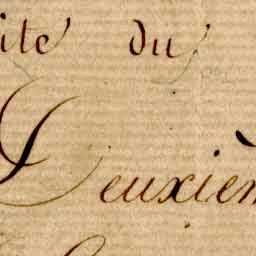 ite du
Deuxièm